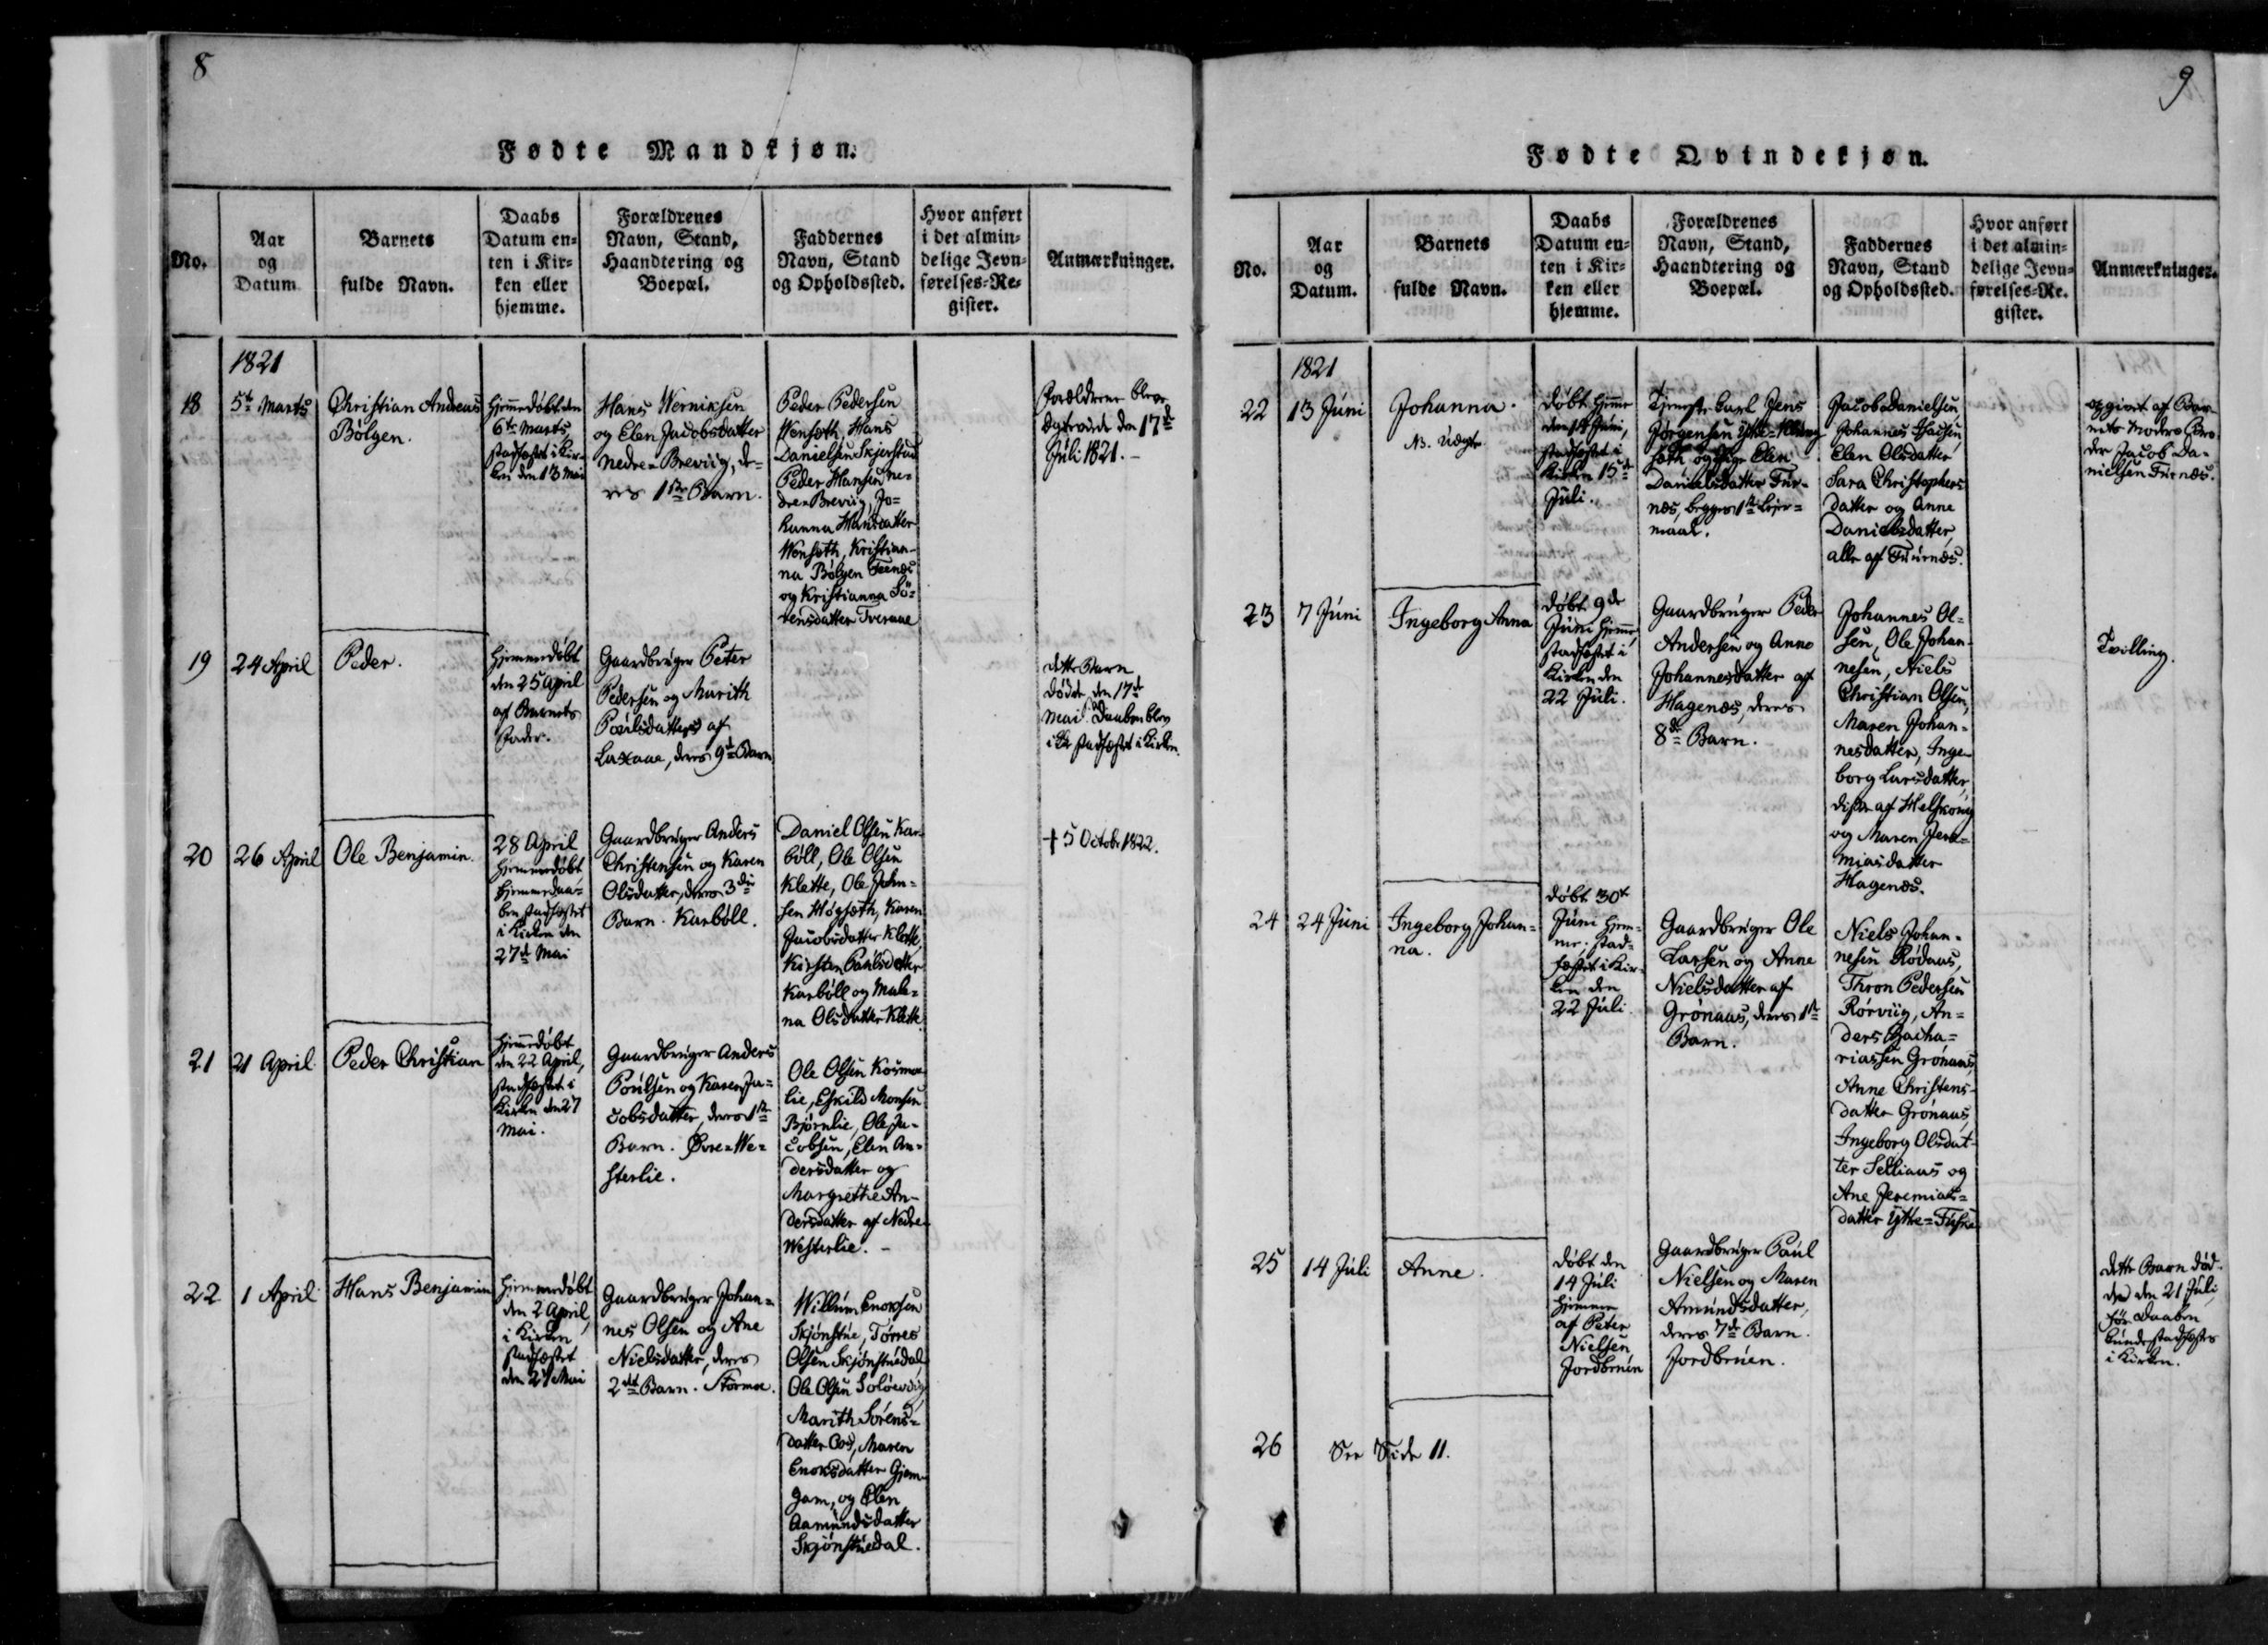 8
Fødte Mandkjøn.
No.
Aar
og
Datum
Barnets
fulde Navn.
Daabs
Datum en-
ten i Kir-
ken eller
hjemme.
Forældrenes
Navn, Stand,
Haandtering og
Boepæl.
Faddernes
Navn, Stand
og Opholdssted.
Hvor anført
i det almin-
delige Jevn-
førelses-Re-
gister.
Anmærkninger.
1821
18
5te Marts
Christian Andreas
Bölgen.
Hjemmedøbt den
6te Marts
stadfæstet i Kir-
ken den 13 Mai
Hans Werniksen
og Elen Jacobsdatter
Nedre Breviig, de-
res 1ste Barn.
Peder Pedersen
Wensæth, Hans
Danielsen Skjerstad
Peder Hansen ne-
dre Breviig, Jo-
hanna Hansdatter
Wensæth, Kristian-
na Bölgen
og Kristianna Sö-
rensdatter Tveraae
Forældrene bleve
ægteviede den 17de
Juli 1821. -
19
24 April
Peder.
Hjemmedøbt
den 25 April
af Barnets
Fader.
Gaardbruger Peter
Pedersen og Marith
Poulsdatter af
Laxaae, deres 9de Barn
dette Barn
døde den 17de
Mai. Daaben blev
ikke stadfæstet i Kirken.
20
26 April
Ole Benjamin.
28 April
hjemmedøbt
hjemmedaa-
ben stadfæstet
i Kirken den
27de Mai
Gaardbruger Anders
Christensen og Karen
Olsdatter, deres 3die
Barn. Karböll.
Daniel Olsen Kar-
böll, Ole Olsen
Klette, Ole John-
sen Högsæth, Karen
Jacobsdatter Klette,
Kirsten Paulsdatter
Karböll og Male-
na Olsdatter Klette
† 5 Octobr 1822.
21
21 April
Peder Christian
Hjemmedøbt
den 22 April,
stadfæstet i
Kirken den 27
Mai.
Gaardbruger Anders
Poulsen og Karen Ja-
cobsdatter, deres 1ste
Barn. Øvre-We-
sterlie.
Ole Olsen Kosmo-
lie, Eskild Monsen
Bjørnlie, Ole Ja-
cobsen, Elen An-
dersdatter og
Margrethe An-
dersdatter af Nedre
Westerlie. -
22
1 April
Hans Benjamin
Hjemmedøbt
den 2 April,
i Kirken
stadfæstet
den 27 Mai
Gaardbruger Johan-
nes Olsen og Ane
Nielsdatter, deres
2det Barn. Stormo.
Willum Enoksen
Skjönstue, Törres
Olsen Skjönstuedal
Ole Olsen
Marith Sörens-
datter Cos, Maren
Enoksdatter Gjem-
gam, og Elen
Aamundsdatter
Skjönstuedal.
9
Fødte Qvindekjøn.
No.
Aar
og
Datum.
Barnets
fulde Navn.
Daabs
Datum en-
ten i Kir-
ken eller
hjemme.
Forældrenes
Navn, Stand,
Haandtering og
Boepæl.
Faddernes
Navn, Stand
og Opholdssted.
Hvor anført
i det almin-
delige Jevn-
førelses-Re-
gister.
Anmærkninger.
1821
22
13 Juni
Johanna.
NB. Uægte
døbt hjemme
den 14 Juni,
stadfæstet i
Kirken 15de
Juli.
Tjenestekarl Jens
Jørgensen Ytre-
sæth og Pige Elen
Danielsdatter Fur-
næs, begges 1ste Leier-
maal.
Jacob Danielsen
Johannes
Elen Olsdatter
Sara Christophers
datter og Anne
Danielsdatter,
alle af Furnæs.
opgivet af Bar-
nets Moders Bro-
der Jacob Da-
nielsen Furnæs.
23
7 Juni
Ingeborg Anna
døbt 9de
Juni hjemme,
stadfæstet i
Kirken den
22 Juli.
Gaardbruger Peder
Andersen og Anne
Johannesdatter af
Hagenæs, deres
8de Barn.
Johannes Ol-
sen, Ole Johan-
nesen, Niels
Christian Olsen,
Maren Johan-
nesdatter, Inge-
borg Larsdatter,
disse af
og Maren Jere-
miasdatter
Hagenæs.
Tvilling.
24
24 Juni
Ingeborg Johan-
na.
døbt 30te
Juni hjem-
me: stad-
fæstet i Kir-
ken den
22 Juli
Gaardbruger Ole
Larsen og Anne
Nielsdatter af
Grønaas, deres 1ste
Barn.
Niels Johan-
nesen Rödaas,
Thron Pedersen
Rörviig, An-
ders Zacha-
riassen Grönaas
Anne Christens-
datter Grönaas,
Ingeborg Olsdat-
ter Selliaas og
Ane Jeremias-
datter Ytre-Fuske
25
14 Juli
Anne.
døbt den
14 Juli
hjemme
af Peter
Nielsen
Jordbruen
Gaardbruger Paul
Nielsen og Maren
Amundsdatter,
deres 7de Barn.
Jordbruen.
dette Barn død-
de den 21 Juli,
før Daaben
kunde stadfæstes
i Kirken.
26
See Side 11.